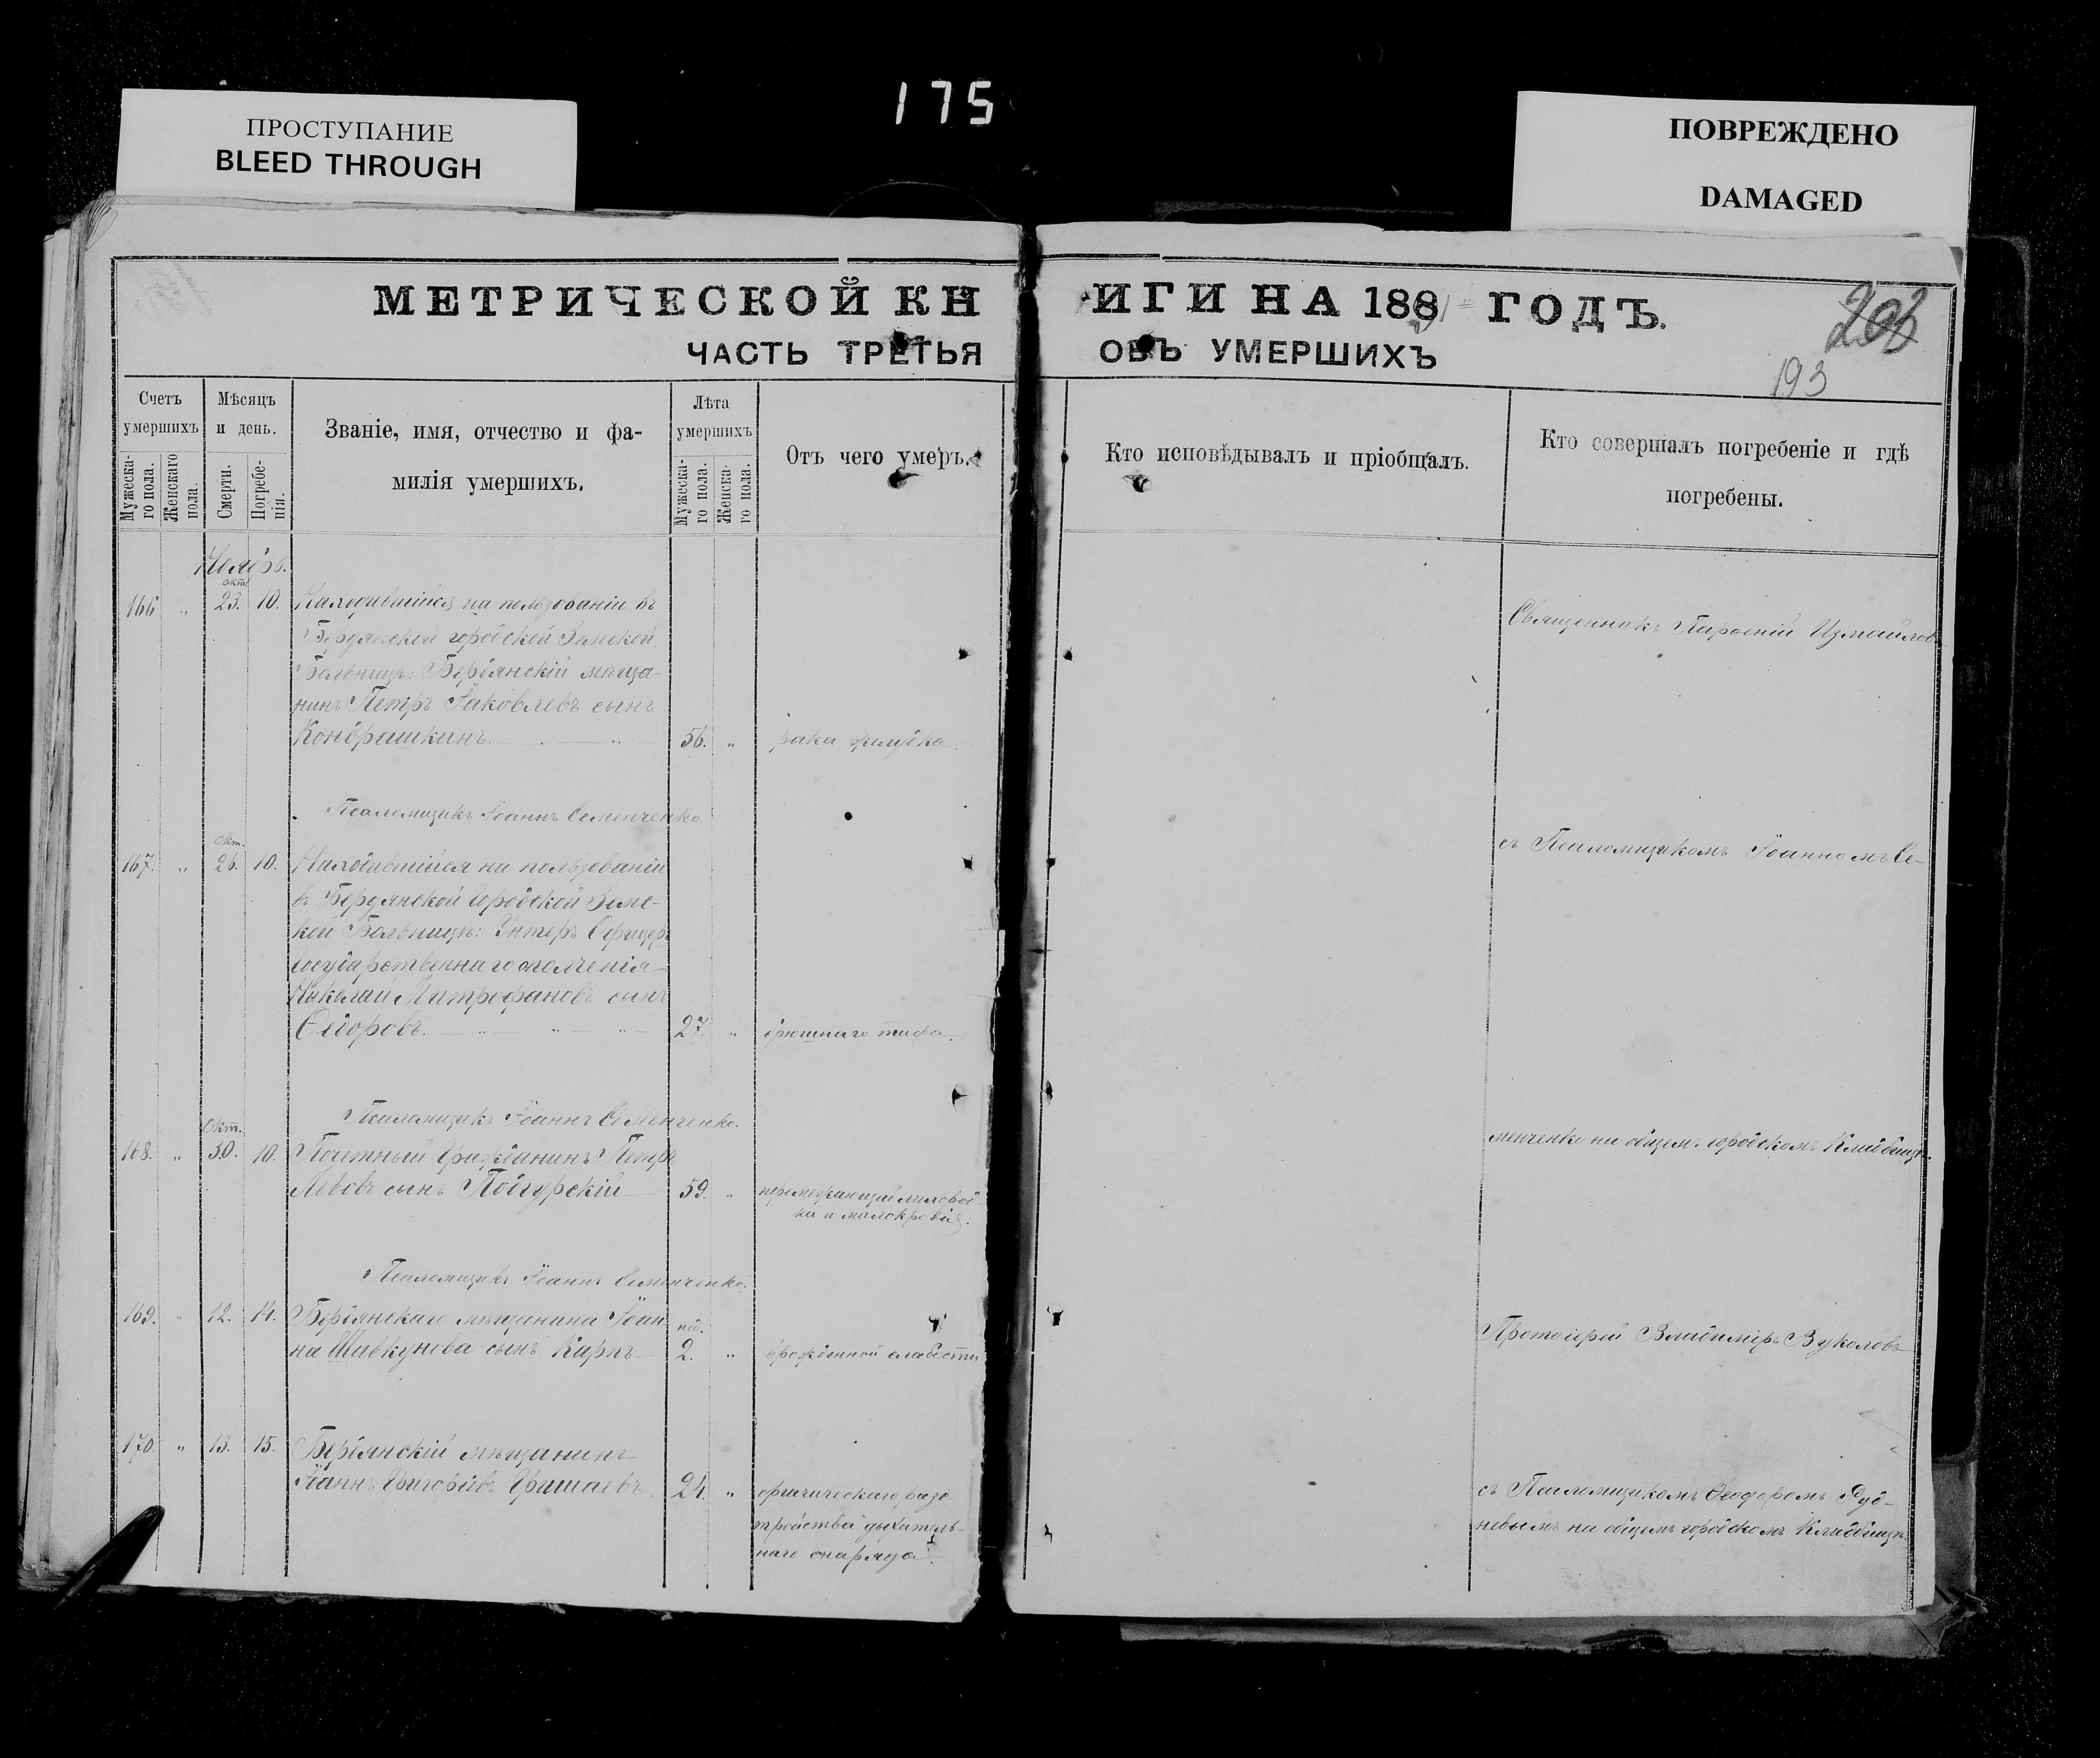 175
ПРОСТУПАНИЕ
BLEED THROUGH
ПОВРЕЖДЕНО
DAMAGED
МЕТРИЧЕСКОЙ КНИГИ НА 188 ГОДЪ.
ЧАСТЬ ТРЕТЬЯ ОБЪ УМЕРШИХЪ
193
Счетъ умершихъ
Мужеска-го пола.
Женскаго пола.
Мѣсяцъ и день.
Смерти.
Погребе-нія.
Званіе, имя, отчество и фа-
милія умершихъ.
Лѣта умершихъ
Мужеска-го пола.
Женска-го пола.
Отъ чего умеръ.
Кто исповѣдывалъ и пріобщалъ.
Кто совершалъ погребеніе и гдѣ
погребены.
Ноябрь.
окт.
166 " 23. 10. Находившійся на пользованіи въ
Бердянской городской Земской
Больницѣ: Бердянскій мѣща-
нинъ Петръ Іаковлевъ сынъ
Кондрашкинъ 56. " рака желудка.
Священникъ Парѳеній Измайловъ
Псаломщикъ Іоаннъ Семенченко.
окт.
167. " 26. 10. Находившійся на пользованіи
въ Бердянской Городской Земс-
кой Больницѣ: Унтеръ Офицеръ
Государственнаго ополченія
Николай Митрофановъ сынъ
Ѳедоровъ. 27. " брюшнаго тифа.
съ Псаломщикомъ Іоанномъ Се-
Псаломщикъ Іоаннъ Семенченко.
Окт.
168. " 30. 10. Почетный Гражданинъ Петръ
Львовъ сынъ Подгурскій 59. " перемежающей лихорад-
ки и малокровія.
менченко на общемъ городскомъ Кладбищѣ.
Псаломщикъ Іоаннъ Семенченко.
169. " 12. 14. Бердянскаго мѣщанина Іоан-
на Шавкунова сынъ Карпъ нед. 2. " врожденной слабости
Протоіерей Владиміръ Вуколовъ
170 " 13. 15. Бердянскій мѣщанинъ
Іоаннъ Григоріевъ Гришаевъ 24. "
тройства дыхатель-
наго снаряда.
съ Псаломщикомъ Ѳеодоромъ Руд-
невымъ на общемъ городскомъ Кладбищѣ.